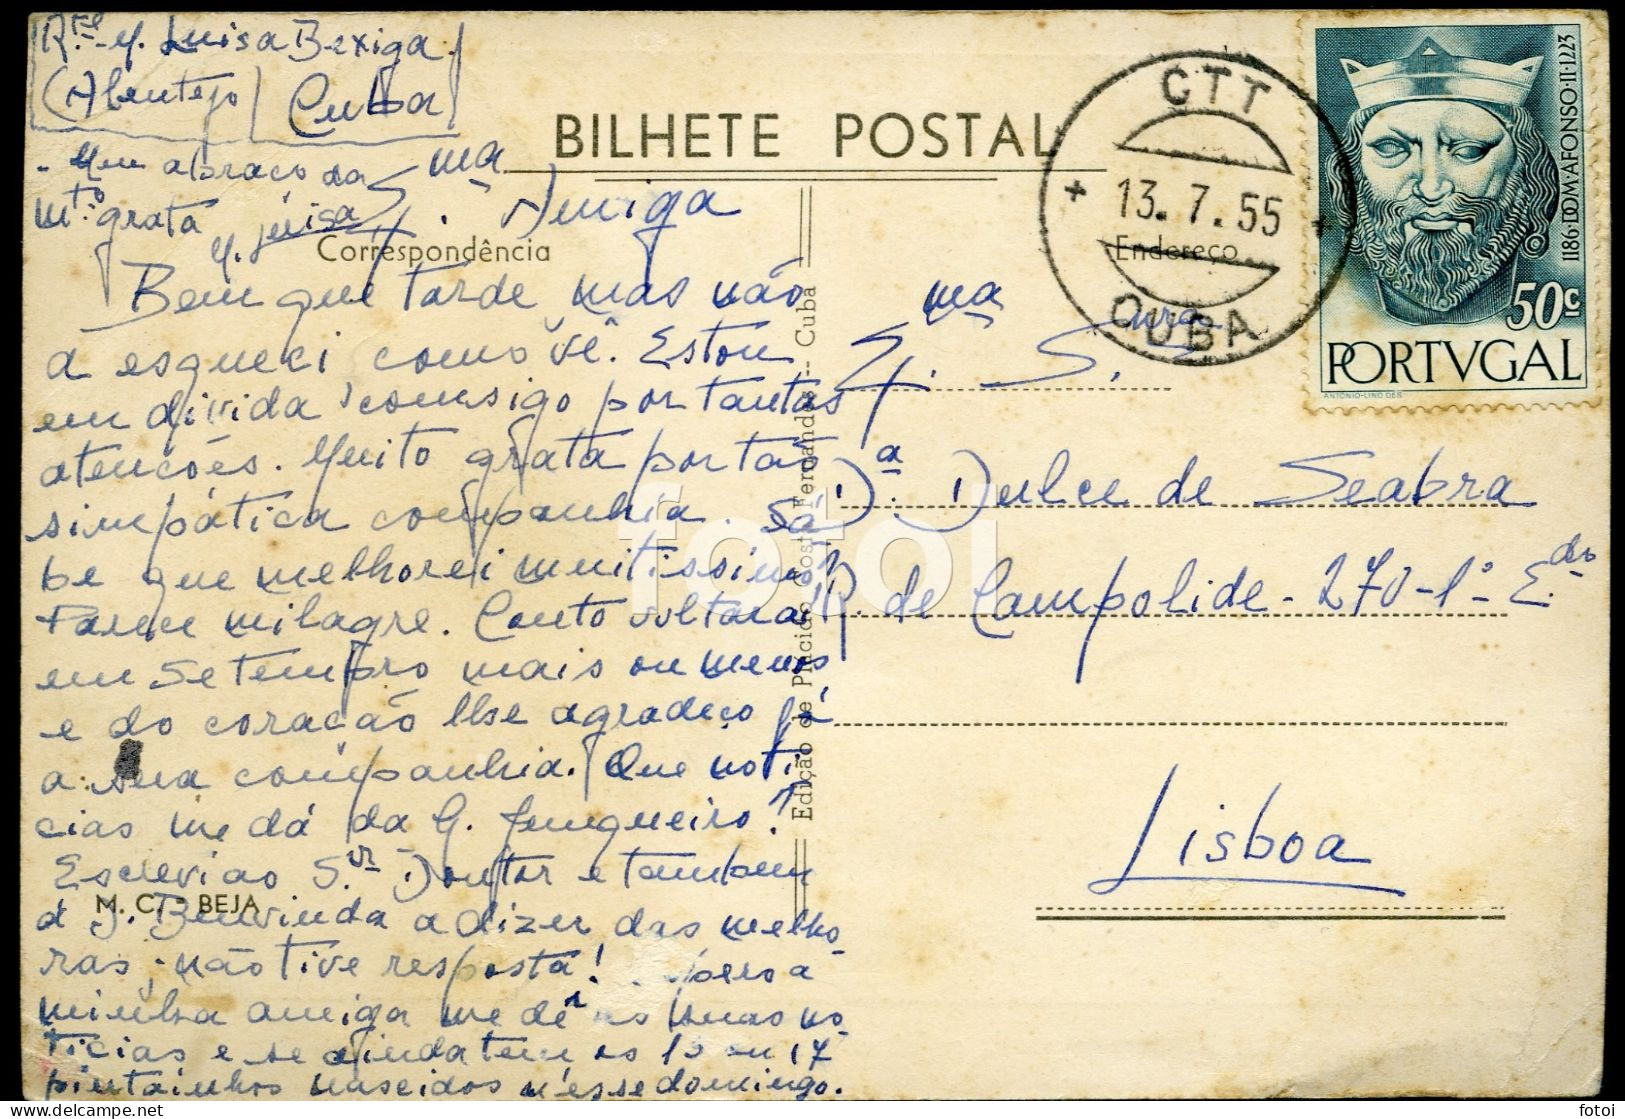 Rte - M. Luisa Bexiga
(Alentejo) Cuba
BILHETE POSTAL
CTT
13.7.55
CUBA
1186·DOM·AFONSO·II·1223
50c
PORTVGAL
ANTÓNIO-LINO DES.
Correspondência
Endereço
Ema Amiga
Bem que tarde mas não
a esqueci como vê. Estou
em divida consigo por tantas
atenções. Muito grata por tão
simpática companhia. Sa-
be que melhorei muitissimo!
Parece milagre. Conto voltar aí
em Setembro mais ou menos
e do coração lhe agradeço já
a sua companhia. Que noti-
cias me dá da G. Junqueiro?
Escrevi ao Sr. Doutor e também
á D. Benvinda a dizer das melho-
ras, não tive resposta! espero a
minha amiga me dê as suas no-
ticias e se ainda tem os 15 ou 17
pintainhos nascidos n'esse domingo.
- Um abraço da
mto grata
M. Luisa
M. C. - BEJA
Edição de Plácido Costa Fernandes - Cuba
Ema Snra
Da. Dulce de Seabra
R. de Campolide - 270 - 1º Edo
Lisboa
fotoi
fotoi